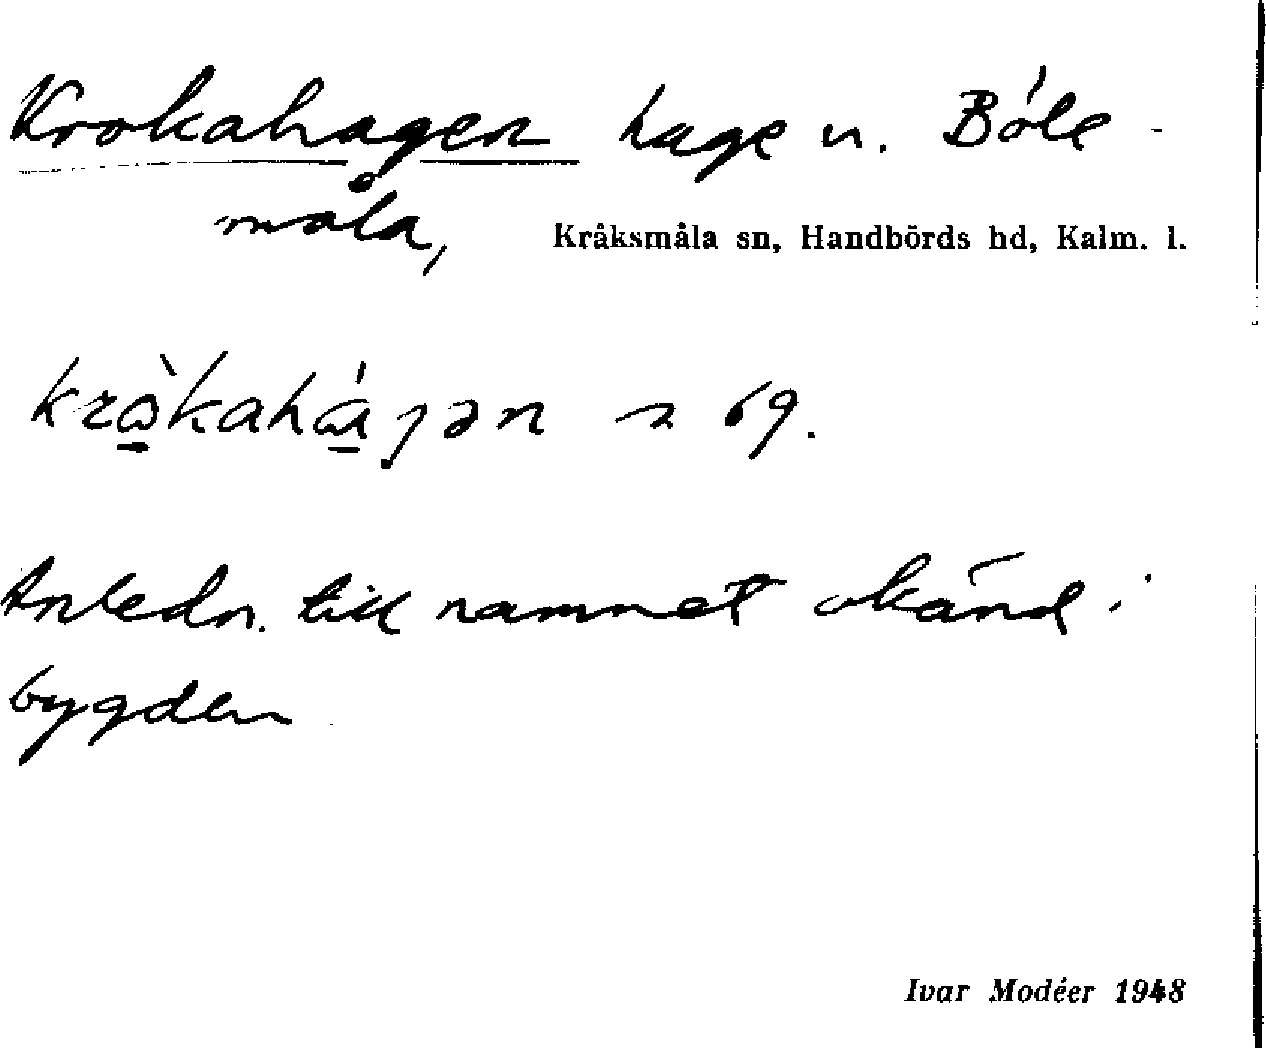 Krokahagen hage u. Böle-
måla, Kråksmåla sn, Handbörds hd, Kalm. l.
69.
Anledn. till namnet okänd i
bygden
Ivar Modéer 1948